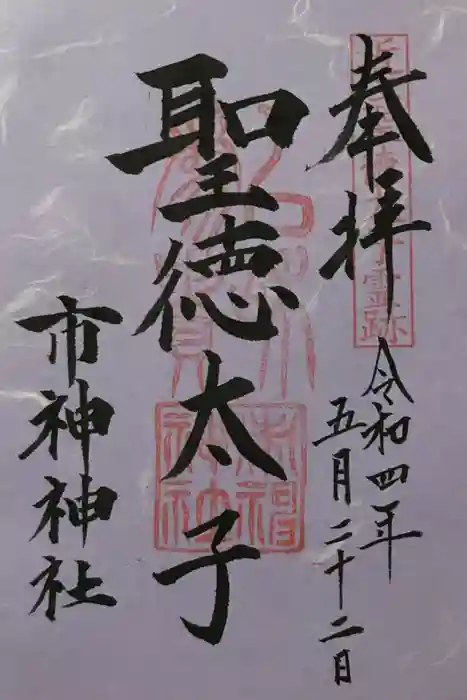 奉拝
令和四年
五月二十二日
聖徳太子
市神神社